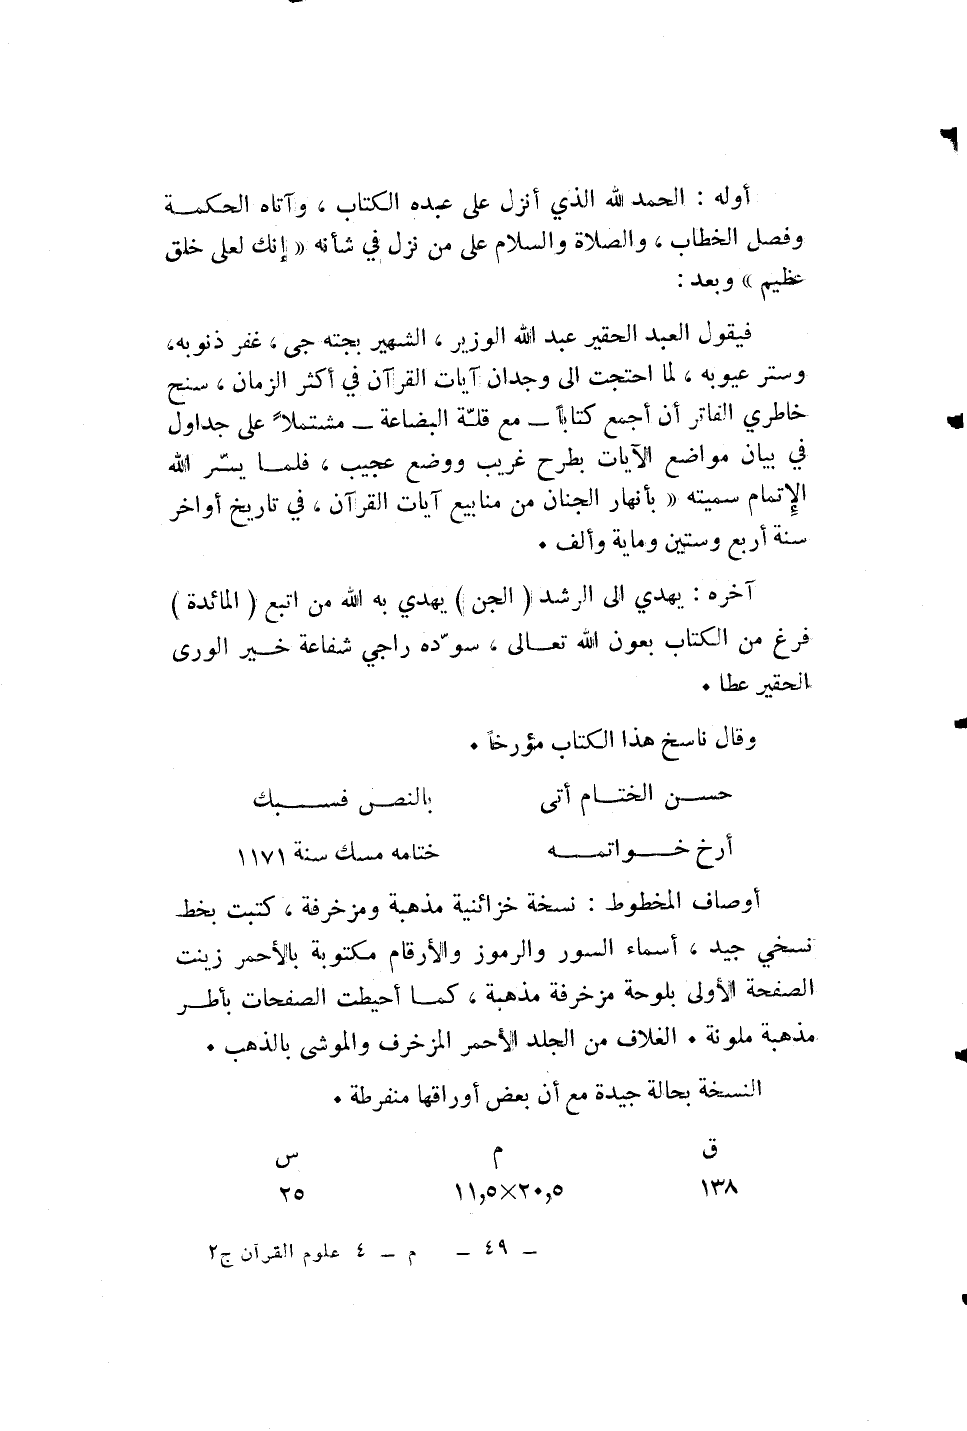 أوله : الحمد لله الذي أنزل على عبده الكتاب ، وآتاه الحكمــة
وفصل الخطاب ، والصلاة والسلام على من نزل في شأنه « إنك لعلى خلق
عظيم » وبعد :
فيقول العبد الحقير عبد الله الوزير ، الشهير بجته جى ، غفر ذنوبه،
وستر عيوبه ، لما احتجت الى وجدان آيات القرآن في أكثر الزمان ، سنح
خاطري الفاتر أن أجمع كتاباً ــ مع قلـّة البضاعة ــ مشتملاً على جداول
في بيان مواضع الآيات بطرح غريب ووضع عجيب ، فلمــا يسّر الله
الإتمام سميته « بأنهار الجنان من منابيع آيات القرآن ، في تاريخ أواخر
سنة أربع وستين وماية وألف .
آخره : يهدي الى الرشد ( الجن ) يهدي به الله من اتبع ( المائدة )
فرغ من الكتاب بعون الله تعــالى ، سوّده راجي شفاعة خــير الورى
الحقير عطا .
وقال ناسخ هذا الكتاب مؤرخاً .
حســن الختــام أتى بالنص فســـبك
أرخ خــــواتمــــه ختامه مسك سنة ١١٧١
أوصاف المخطوط : نسخة خزائنية مذهبة ومزخرفة ، كتبت بخط
نسخي جيد ، أسماء السور والرموز والأرقام مكتوبة بالأحمر زينت
الصفحة الأولى بلوحة مزخرفة مذهبة ، كمــا أحيطت الصفحات بأطــر
مذهبة ملونة . الغلاف من الجلد الأحمر المزخرف والموشى بالذهب .
النسخة بحالة جيدة مع أن بعض أوراقها منفرطة .
ق م س
١٣٨ ٢٠,٥×١١,٥ ٢٥
ــ ٤٩ ــ م ــ ٤ علوم القرآن ج٢